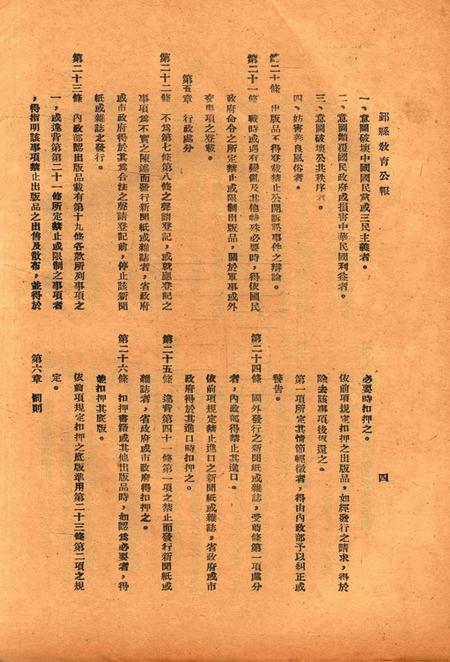 鄞縣教育公報
四
一、意圖破壞中國國民黨或三民主義者。
二、意圖顛覆國民政府或損害中華民國利益者。
三、意圖破壞公共秩序者。
四、妨害善良風俗者。
第二十條 出版品不得登載禁止公開訴訟事件之辯論。
第二十一條 戰時或遇有變亂及其他特殊必要時，得依國民
政府命令之所定禁止或限制出版品，關於軍事或外
交事項之登載。
第五章 行政處分
第二十二條 不為第七條第八條之聲請登記，或就應登記之
事項為不實之陳述而發行新聞紙或雜誌者，省政府
或市政府得於其為合法之聲請登記前，停止該新聞
紙或雜誌之發行。
第二十三條 內政部認出版品載有第十九條各款所列事項之
一，或違背第二十一條所定禁止或限制之事項者
，得指明該事項禁止出版品之出售及散布，並得於
必要時扣押之。
依前項規定扣押之出版品，如經發行之請求，得於
除去該事項後返還之。
第一項所定其情節輕微者，得由內政部予以糾正或
警告。
第二十四條 國外發行之新聞紙或雜誌，受前條第一項處分
者，內政部得禁止其進口。
依前項規定禁止進口之新聞紙或雜誌，省政府或市
政府得於其進口時扣押之。
第二十五條 違背第四十一條第一項之禁止而發行新聞紙或
雜誌者，省政府或市政府得扣押之。
第二十六條 扣押書籍或其他出版品時，如認為必要者，得
並扣押其底版。
依前項規定扣押之底版準用第二十三條第二項之規
定。
第六章 罰則